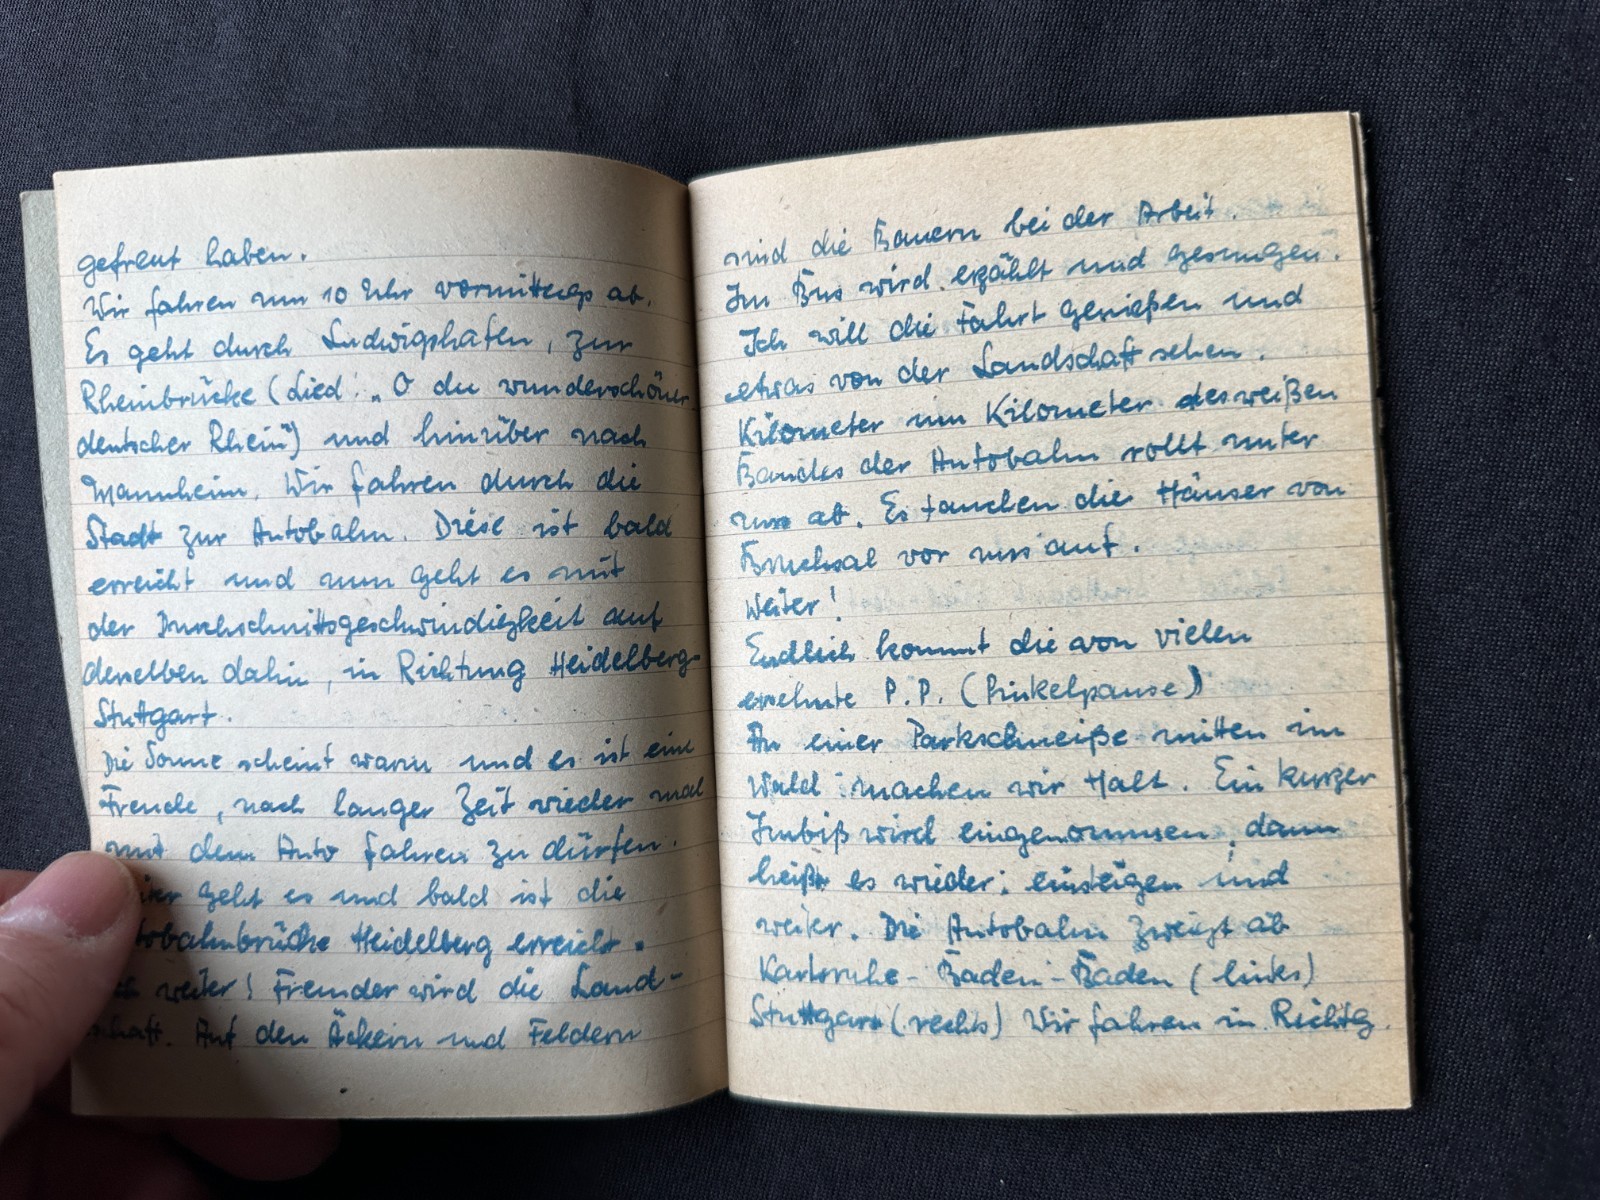 gefreut haben.
Wir fahren um 10 Uhr vormittags ab.
Es geht durch Ludwigshafen, zur
Rheinbrücke (Lied: „O du wunderschöner
deutscher Rhein") und hinüber nach
Mannheim. Wir fahren durch die
Stadt zur Autobahn. Diese ist bald
erreicht und nun geht es mit
der Durchschnittsgeschwindigkeit auf
derselben dahin, in Richtung Heidelberg-
Stuttgart.
Die Sonne scheint warm und es ist eine
Freude, nach langer Zeit wieder mal
mit dem Auto fahren zu dürfen.
geht es und bald ist die
tobahnbrücke Heidelberg erreicht.
weiter! Fremder wird die Land-
schaft. Auf den Äckern und Feldern
sind die Bauern bei der Arbeit.
Im Bus wird erzählt und gesungen.
Ich will die Fahrt genießen und
etwas von der Landschaft sehen.
Kilometer um Kilometer des weißen
Bandes der Autobahn rollt unter
uns ab. Es tauchen die Häuser von
Bruchsal vor uns auf.
Weiter!
Endlich kommt die von vielen
ersehnte P.P. (Pinkelpause)
An einer Parkschneiße mitten im
Wald machen wir Halt. Ein kurzer
Imbiß wird eingenommen, dann
heißt es wieder: einsteigen und
weiter. Die Autobahn zweigt ab
Karlsruhe - Baden-Baden (links)
Stuttgart (rechts) Wir fahren in Richtg.